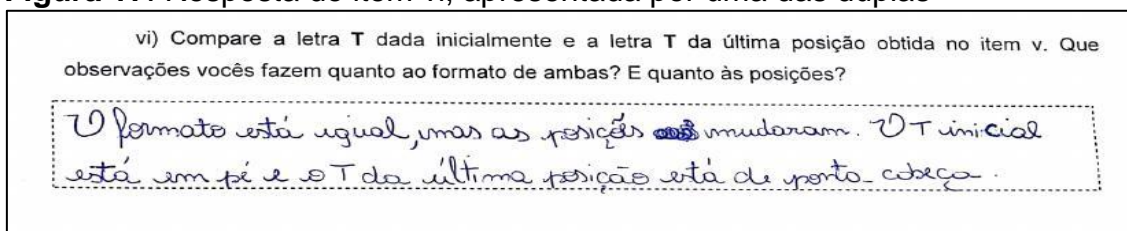 Figura 17: Resposta do item vi, apresentada por uma das duplas
vi) Compare a letra T dada inicialmente e a letra T da última posição obtida no item v. Que
observações vocês fazem quanto ao formato de ambas? E quanto às posições?
O formato está igual, mas as posições mudaram. O T inicial
está em pé e o T da última posição está de ponta-cabeça.